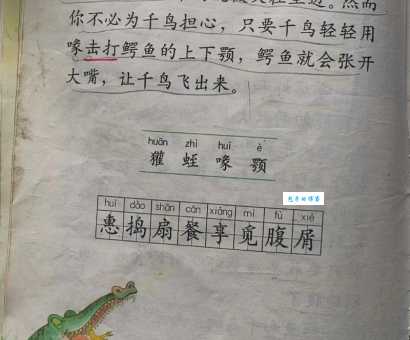 你不必为千鸟担心，只要千鸟轻轻用
喙击打鳄鱼的上下颚，鳄鱼就会张开
大嘴，让千鸟飞出来。
huān zhì huì è
獾 蛭 喙 颚
huì dǎo shān cān xiǎng mì fù xiè
惠 捣 扇 餐 享 觅 腹 屑